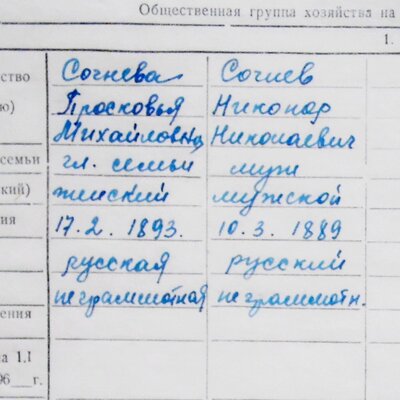 Общественная группа хозяйства на
1.
ство
Сочнева
Сочнев
ю)
Просковья
Никонор
Михайловна
Николаевич
семьи
гл. семьи
муж
кий)
женский
мужской
ия
17.2. 1893.
10.3. 1889
русская
русский
неграммотная
неграммотн.
ения
на 1.I
96 г.